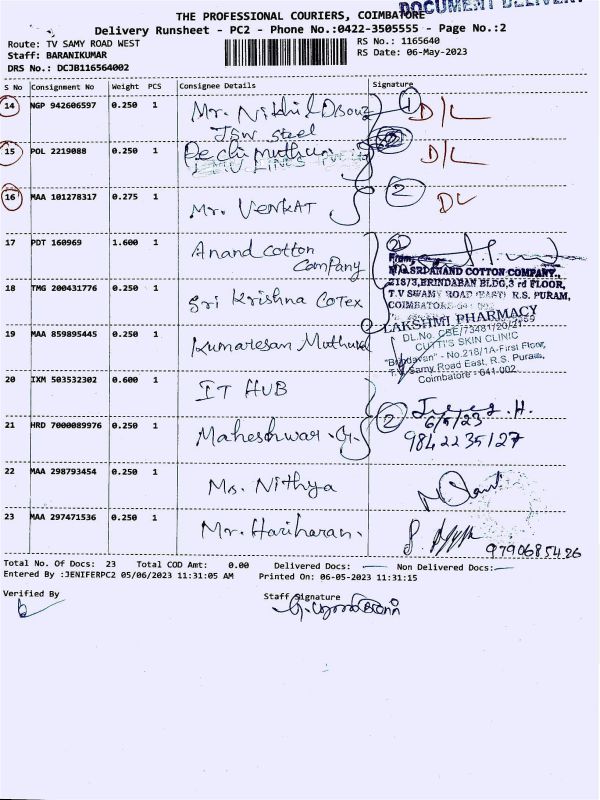 DOCUMENT DELIVERY
THE PROFESSIONAL COURIERS, COIMBATORE
Delivery Runsheet - PC2 - Phone No.:0422-3505555 - Page No.:2
Route: TV SAMY ROAD WEST
RS No.: 1165640
Staff: BARANIKUMAR
RS Date: 06-May-2023
DRS No.: DCJB116564002
S No Consignment No Weight PCS Consignee Details Signature
14 NGP 942606597 0.250 1 Mr. Nithil Dsouz 1 D/L
JSW steel
15 POL 2219088 0.250 1 Pechimuthu D/L
16 MAA 101278317 0.275 1 Mr. VENKAT 2 DL
17 PDT 160969 1.600 1 Anand Cotton Company 2
From,
M/S.SRI ANAND COTTON COMPANY.,
218/3,BRINDABAN BLDG,3 rd FLOOR,
T.V SWAMY ROAD (EAST) R.S. PURAM,
COIMBATORE-641 002
18 TMG 200431776 0.250 1 Sri Krishna Cotex
LAKSHMI PHARMACY
DL.No. CBE/73481/20/21
CUTTI'S SKIN CLINIC
"Brindavan" - No.218/1A-First Floor,
T.V. Samy Road East, R.S. Puram,
Coimbatore - 641-002
19 MAA 859895445 0.250 1 Kumaresan
20 IXM 503532302 0.600 1 IT HUB
21 HRD 7000089976 0.250 1 Maheshwar .G. 2
6/5/23
9842235127
22 MAA 298793454 0.250 1 Ms. Nithya
23 MAA 297471536 0.250 1 Mr. Hariharan.
9790685426
Total No. Of Docs: 23 Total COD Amt: 0.00 Delivered Docs: Non Delivered Docs:
Entered By :JENIFERPC2 05/06/2023 11:31:05 AM Printed On: 06-05-2023 11:31:15
Verified By
Staff Signature